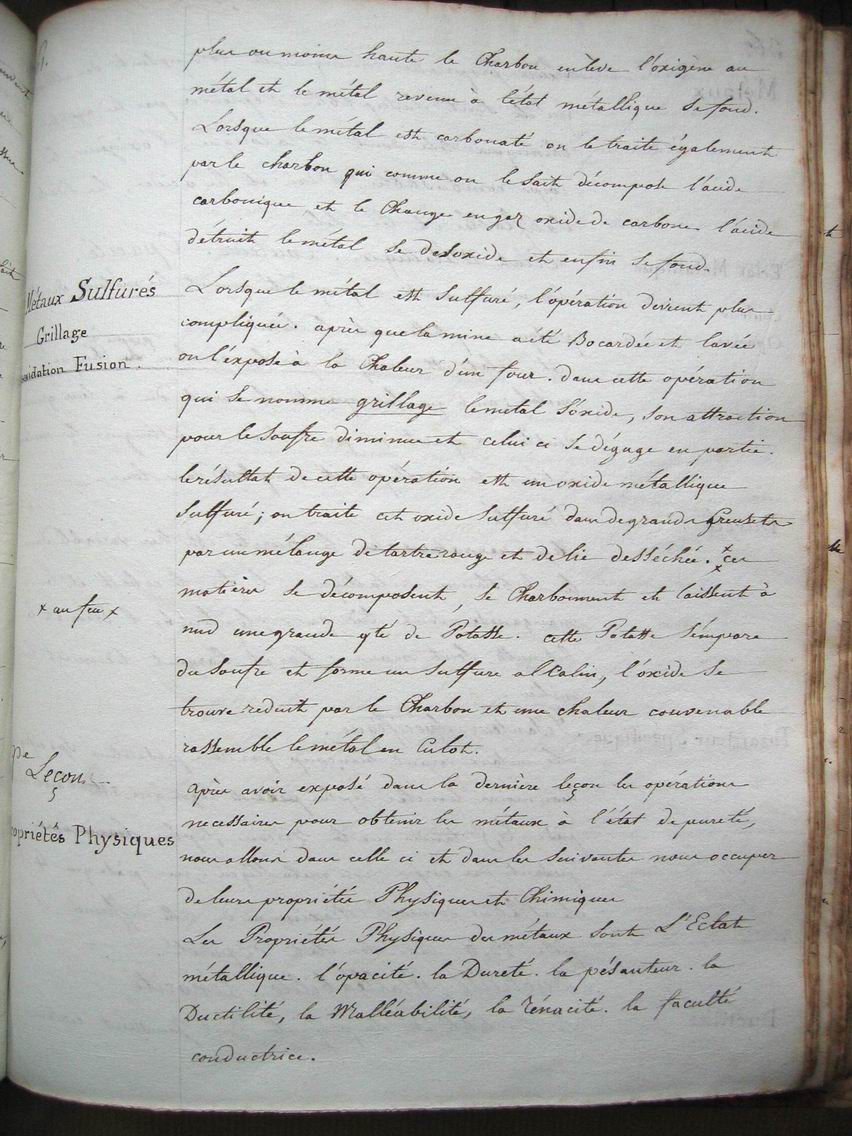 plus ou moins haute le Charbon enlève l'oxigène au
métal et le métal revenu à l'état métallique se fond.
Lorsque le métal est carbonaté on le traite également
par le charbon qui comme on le sait décompose l'acide
carbonique et le Change en gaz oxide de carbone l'acide
detruit le métal se desoxide et enfin se fond.
Métaux Sulfurés
Lorsque le métal est Sulfuré, l'opération devient plus
Grillage
compliquée. après que la mine a été Bocardée et lavée
oxidation Fusion.
on l'expose à la Chaleur d'un four. dans cette opération
qui se nomme grillage le metal s'oxide, son attraction
pour le Soufre diminue et celui ci se dégage en partie.
le résultat de cette opération est un oxide métallique
Sulfuré; on traite cet oxide Sulfuré dans de grands Creusets
par un mélange de tartre rouge et de lie desséchée. x ces
x au feu x
matières se décomposent, se Charbonnent et laissent à
nud une grande qté de Potasse. cette Potasse s'empare
du Soufre et forme un Sulfure alkalin, l'oxide se
trouve reduit par le Charbon et une chaleur convenable
rassemble le métal en Culot.
Leçon
après avoir exposé dans la dernière leçon les opérations
necessaires pour obtenir les métaux à l'état de pureté,
Propriétés Physiques
nous allons dans celle ci et dans les Suivantes nous occuper
de leurs propriétés Physiques et Chimiques
Les Propriétés Physiques des métaux sont L'Eclat
métallique. l'opacité. la Dureté. la pésanteur. la
Ductilité, la Malléabilité, la Ténacité. la faculté
conductrice.